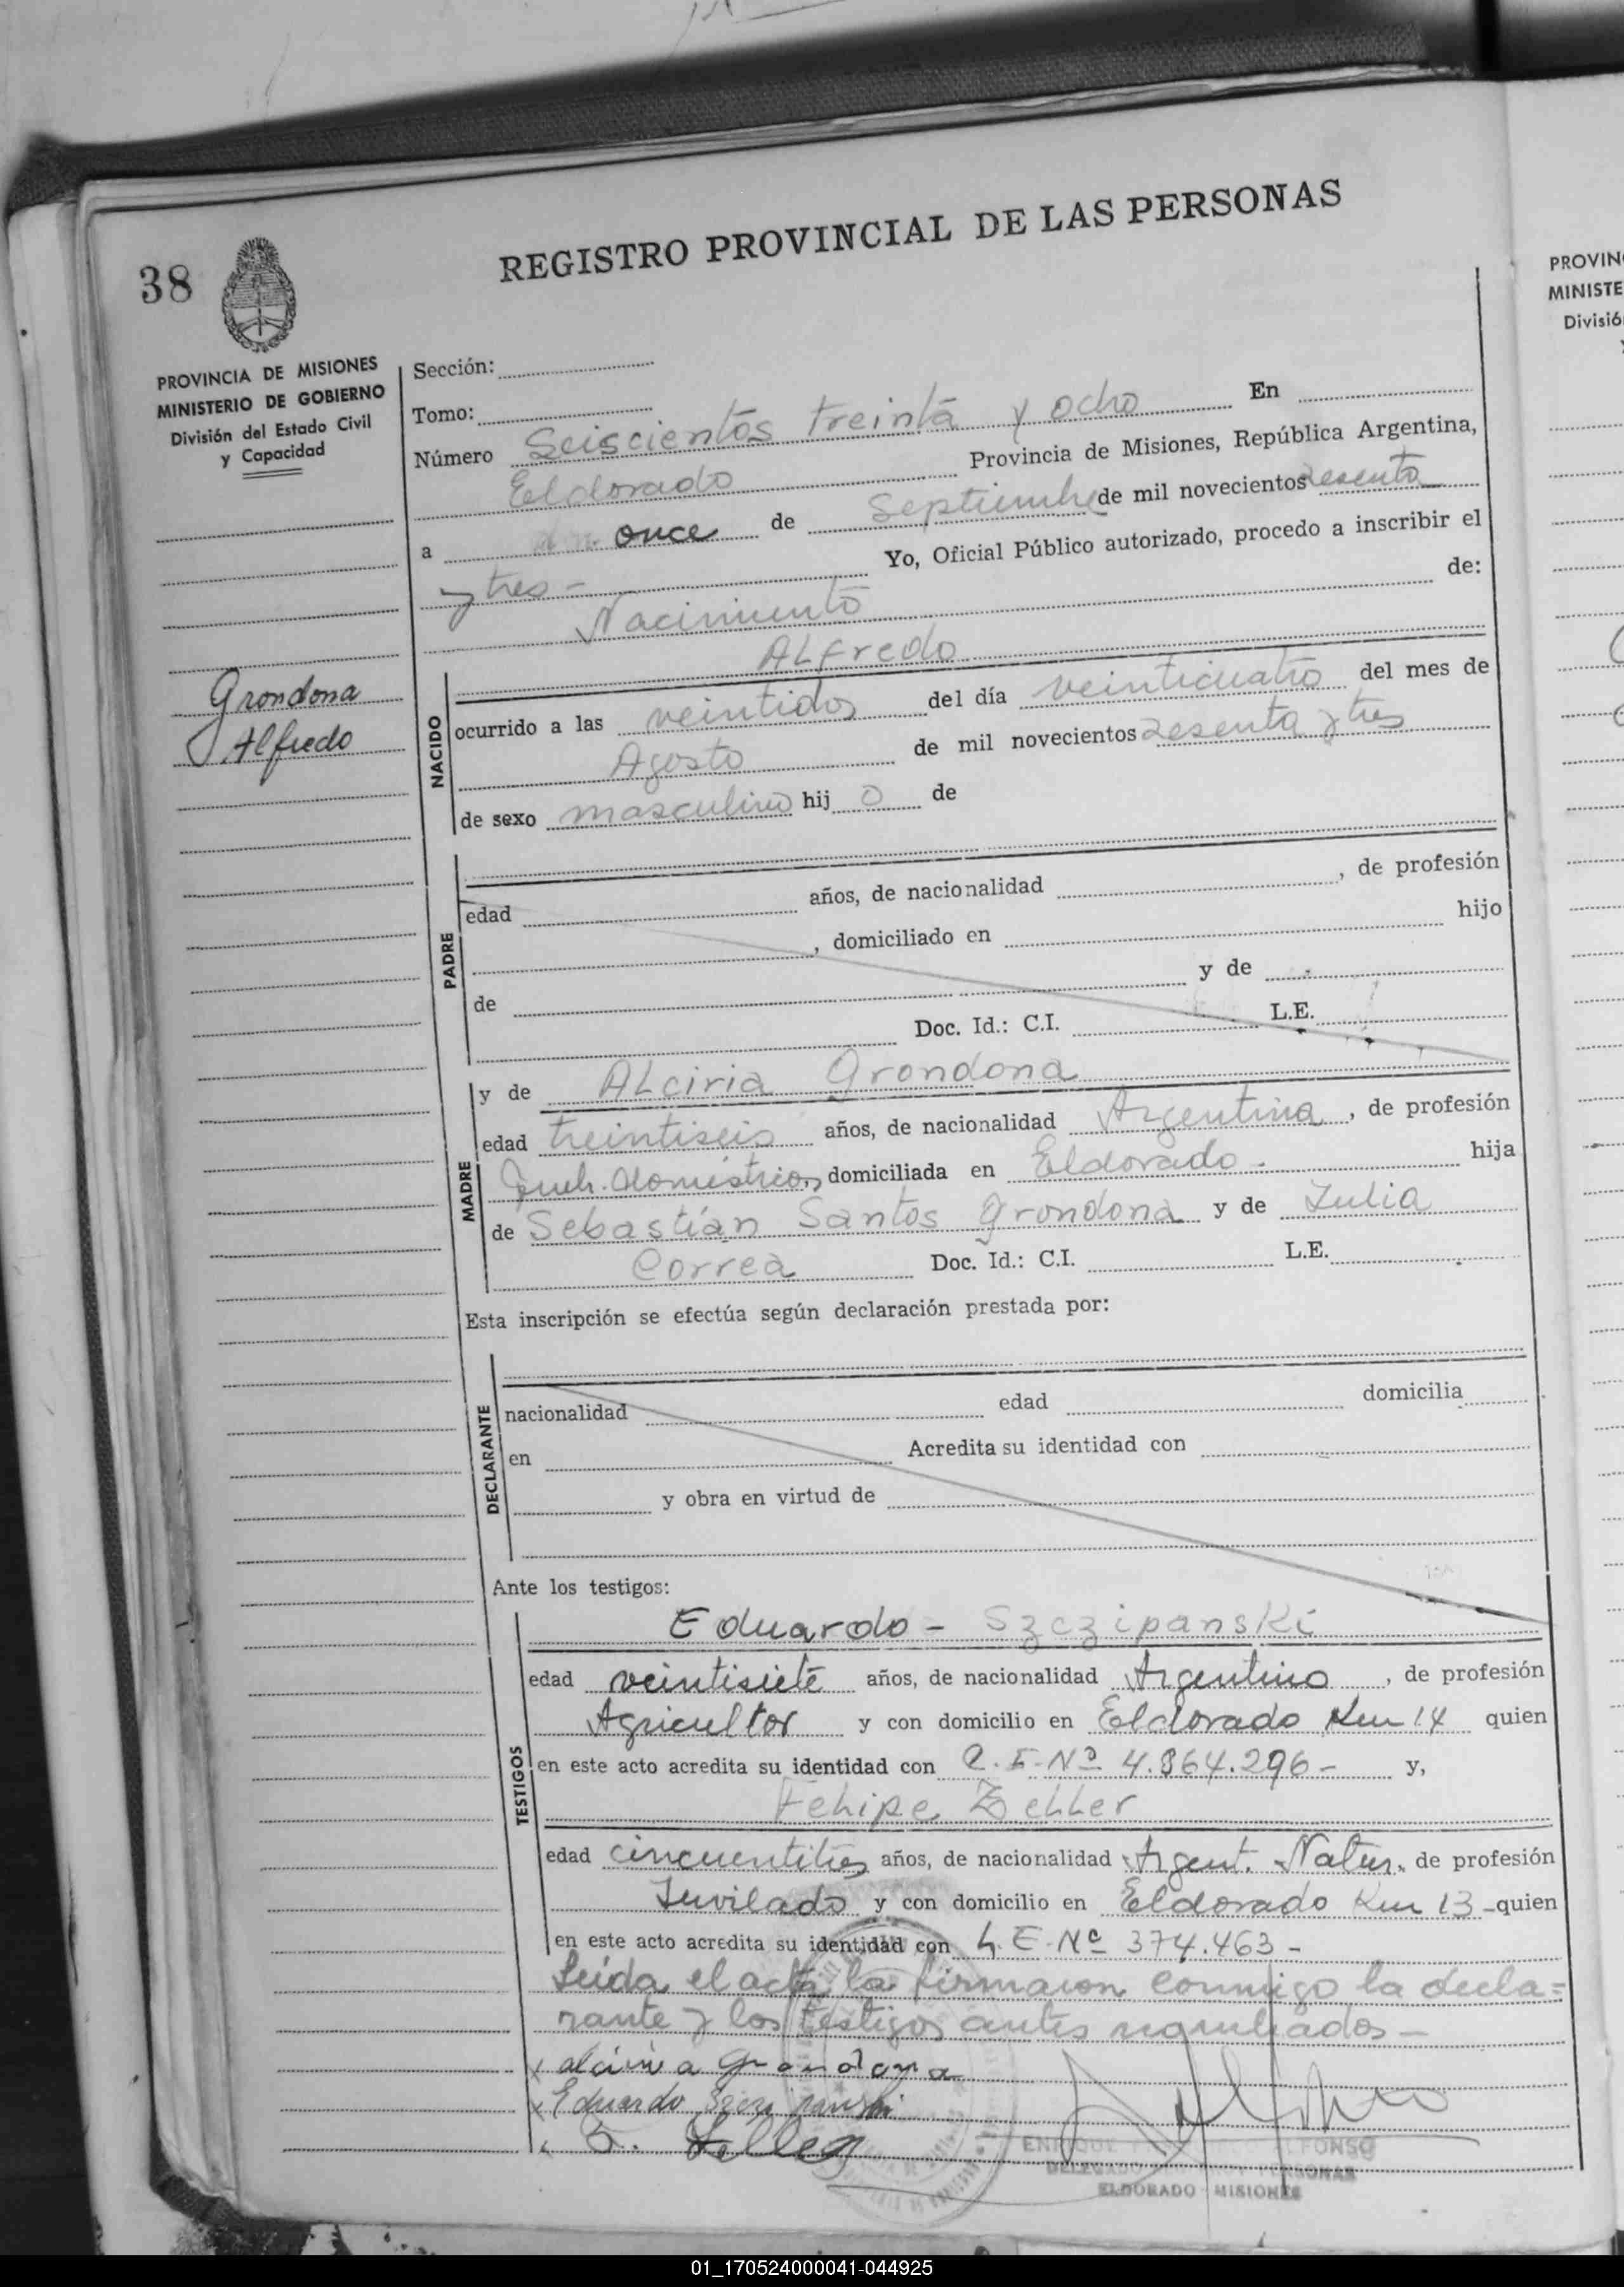 38
REGISTRO PROVINCIAL DE LAS PERSONAS
PROVINCIA DE MISIONES
MINISTERIO DE GOBIERNO
División del Estado Civil
y Capacidad
Grondona
Alfredo
Sección:
Tomo:
Número Seiscientos treinta y ocho En
Eldorado Provincia de Misiones, República Argentina,
a once de Septiembre de mil novecientos sesenta
y tres - Yo, Oficial Público autorizado, procedo a inscribir el
Nacimiento de:
NACIDO
ALFredo
ocurrido a las veintidos del día veinticuatro del mes de
Agosto de mil novecientos sesenta y tres
de sexo masculino hij o de
PADRE
edad años, de nacionalidad , de profesión
, domiciliado en hijo
de y de
Doc. Id.: C.I. L.E.
MADRE
y de ALciria Grondona
edad treintiseis años, de nacionalidad Argentina , de profesión
domiciliada en Eldorado. hija
de Sebastían Santos Grondona y de Julia
Correa Doc. Id.: C.I. L.E.
Esta inscripción se efectúa según declaración prestada por:
DECLARANTE
nacionalidad edad domicilia
en Acredita su identidad con
y obra en virtud de
Ante los testigos:
TESTIGOS
Eduardo - Szczipanski
edad veintisiete años, de nacionalidad Argentino , de profesión
Agricultor y con domicilio en Eldorado Km 14 quien
en este acto acredita su identidad con C.I-Nº 4.864.296- y,
Felipe Zeller
edad cincuentitres años, de nacionalidad Argent. Natur. de profesión
Juvilado y con domicilio en Eldorado Km 13 - quien
en este acto acredita su identidad con L.E-Nº 374.463-
Leida el acta la firmaron conmigo la decla=
rante y los testigos antes nombrados -
x alciria Grondona
x Eduardo Szczipanski
ENRIQUE ALFONSO
DELEGADO PERSONAS
ELDORADO - MISIONES
PROVIN
MINISTE
Divisió
01_170524000041-044925